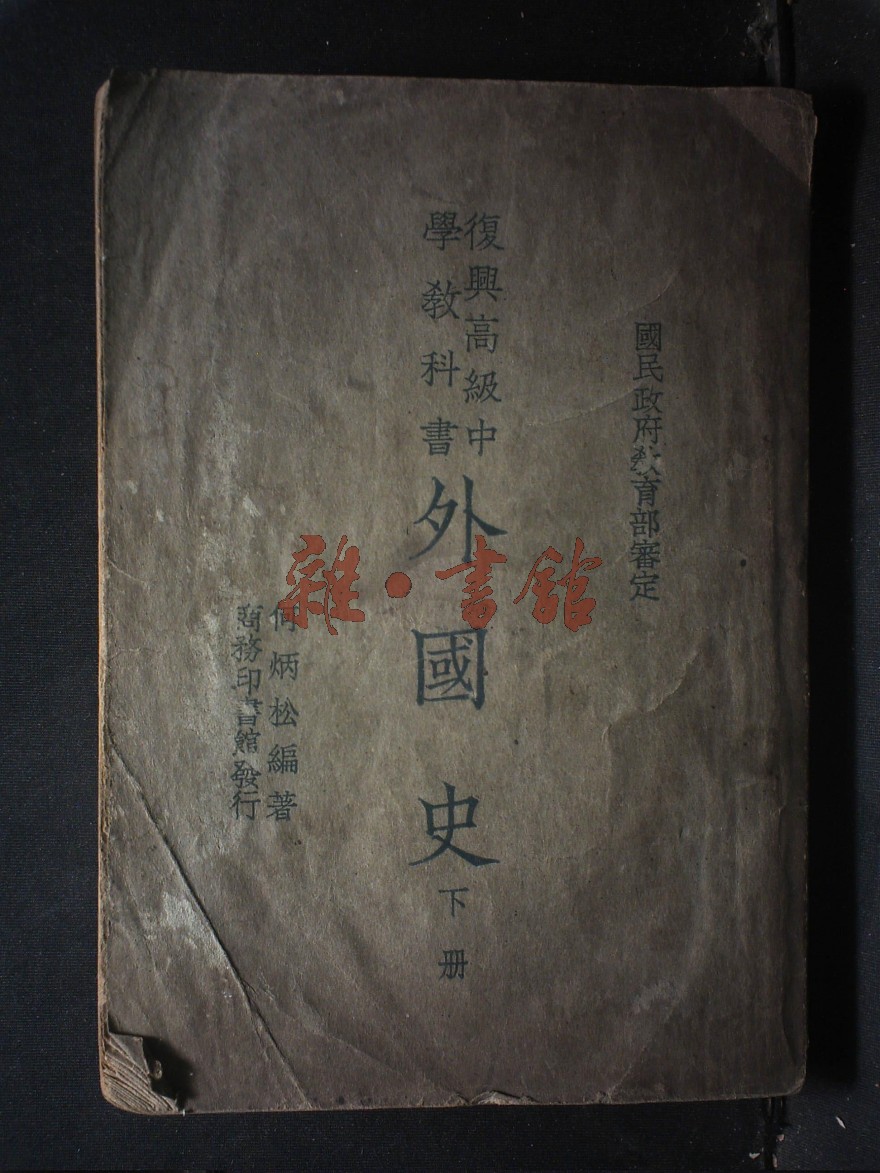 國民政府教育部審定
復興高級中
學教科書
外國史
下册
何炳松編著
商務印書館發行
雜·書館